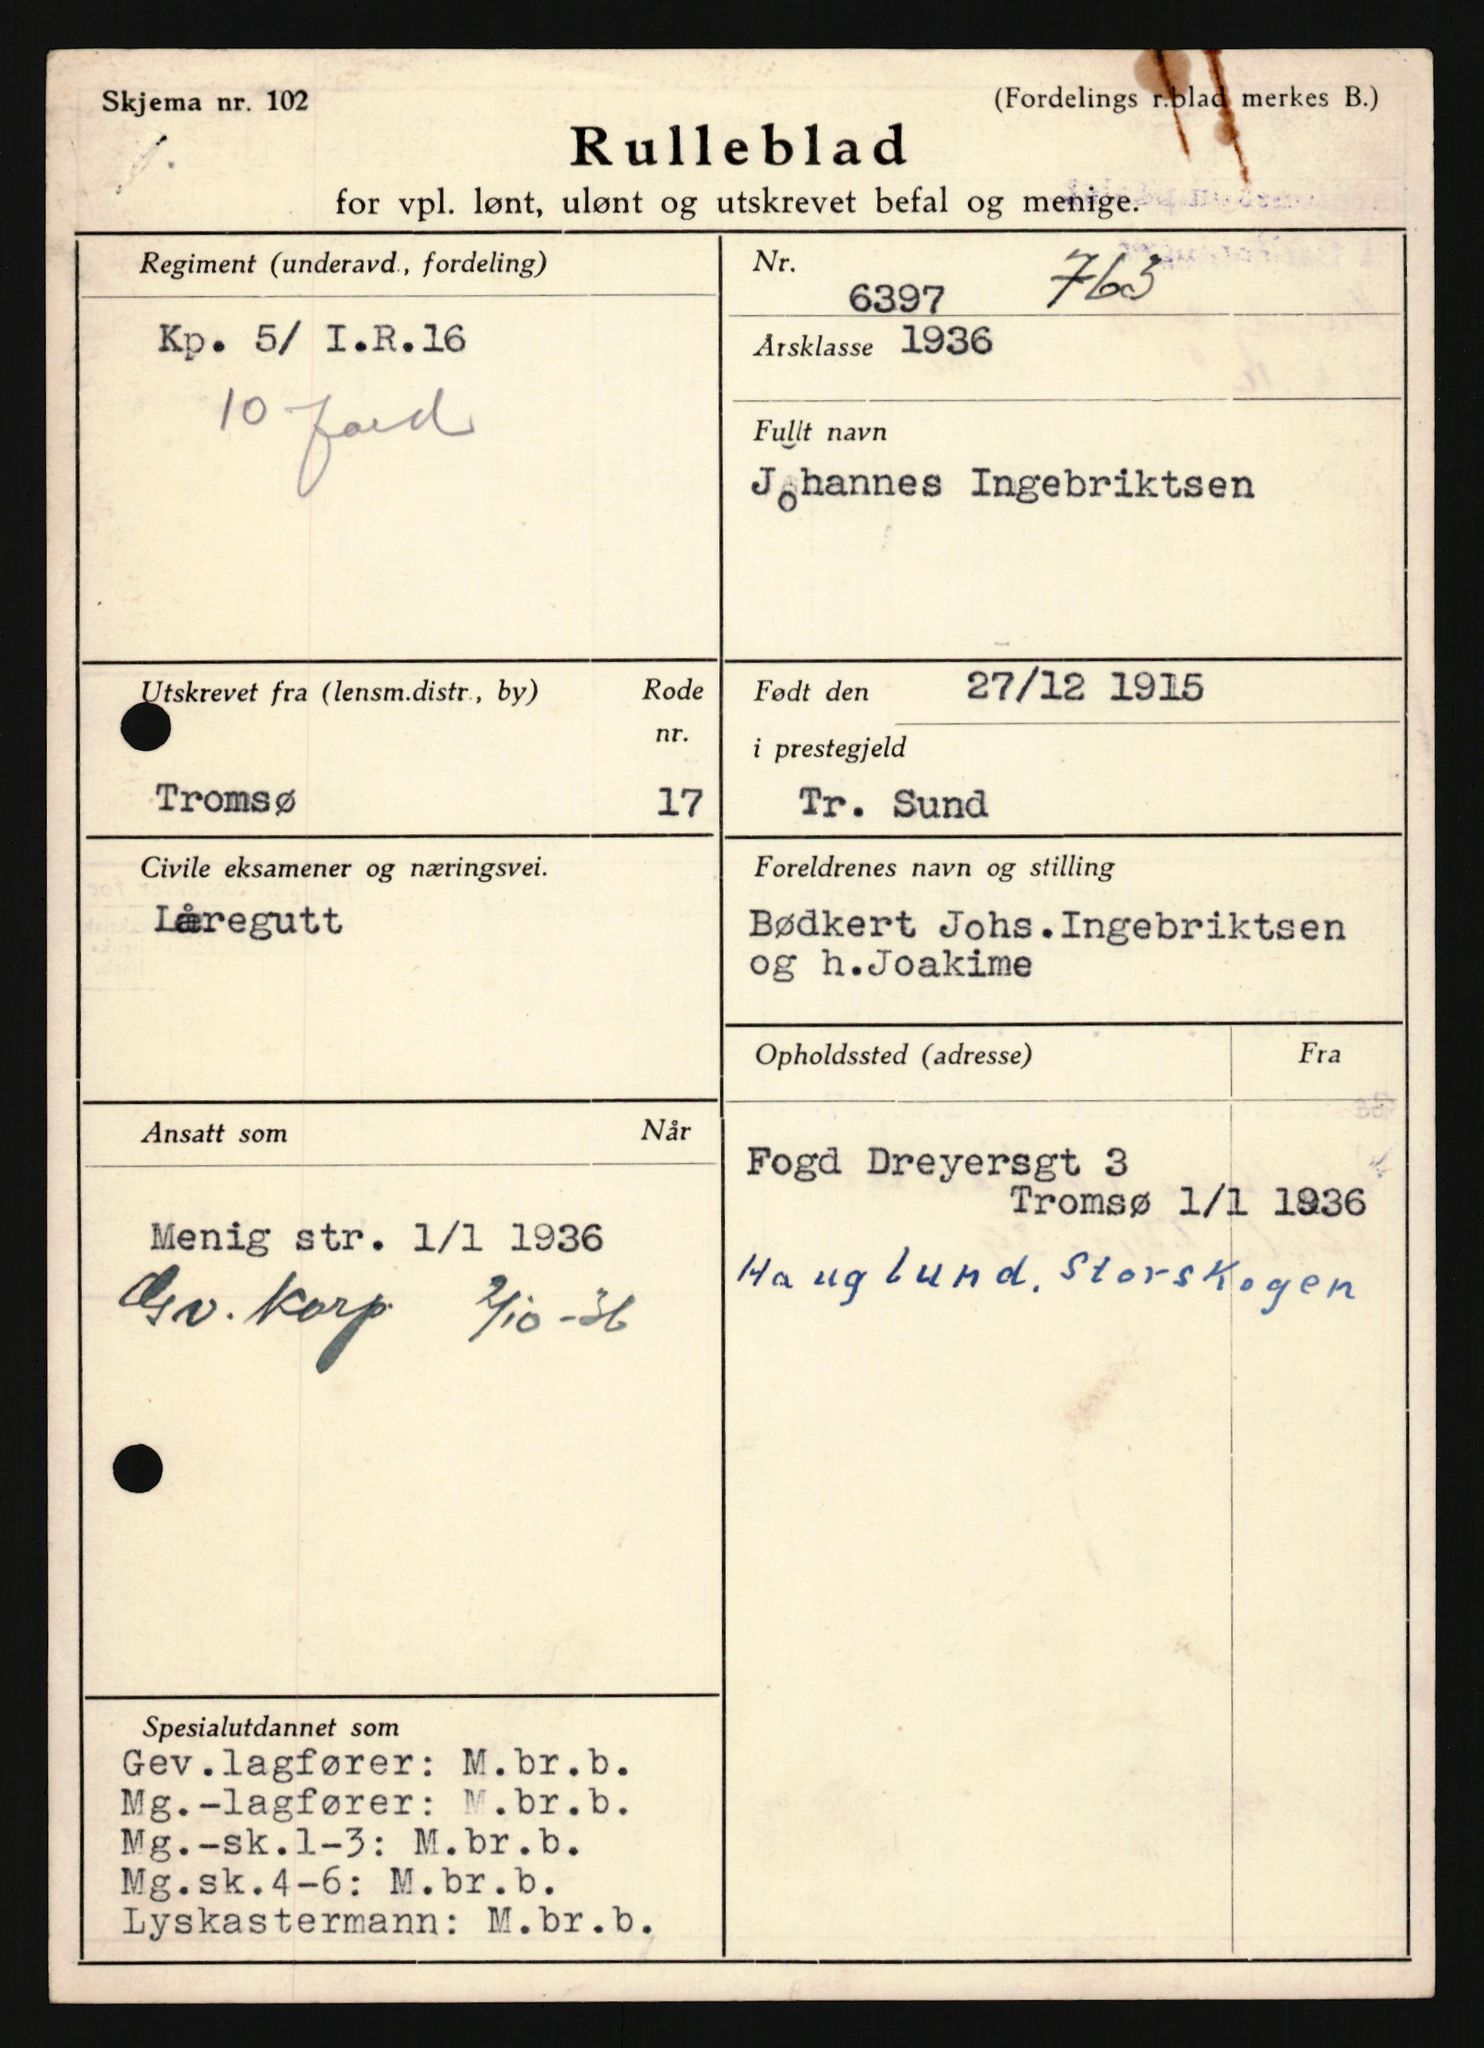 Skjema nr. 102
(Fordelings r.blad merkes B.)
Rulleblad
for vpl. lønt, ulønt og utskrevet befal og menige.
Regiment (underavd., fordeling)
Kp. 5/ I.R.16
10 ford
Nr.
6397 763
Årsklasse 1936
Fullt navn
Johannes Ingebriktsen
Utskrevet fra (lensm.distr., by) Rode
nr.
Tromsø 17
Født den 27/12 1915
i prestegjeld
Tr. Sund
Civile eksamener og næringsvei.
Læregutt
Foreldrenes navn og stilling
Bødkert Johs.Ingebriktsen
og h.Joakime
Ansatt som Når
Menig str. 1/1 1936
Gv. Korp 2/10-36
Opholdssted (adresse) Fra
Fogd Dreyersgt 3
Tromsø 1/1 1936
Hauglund, Storskogen
Spesialutdannet som
Gev.lagfører: M.br.b.
Mg.-lagfører: M.br.b.
Mg.-sk.1-3: M.br.b.
Mg.sk.4-6: M.br.b.
Lyskastermann: M.br.b.